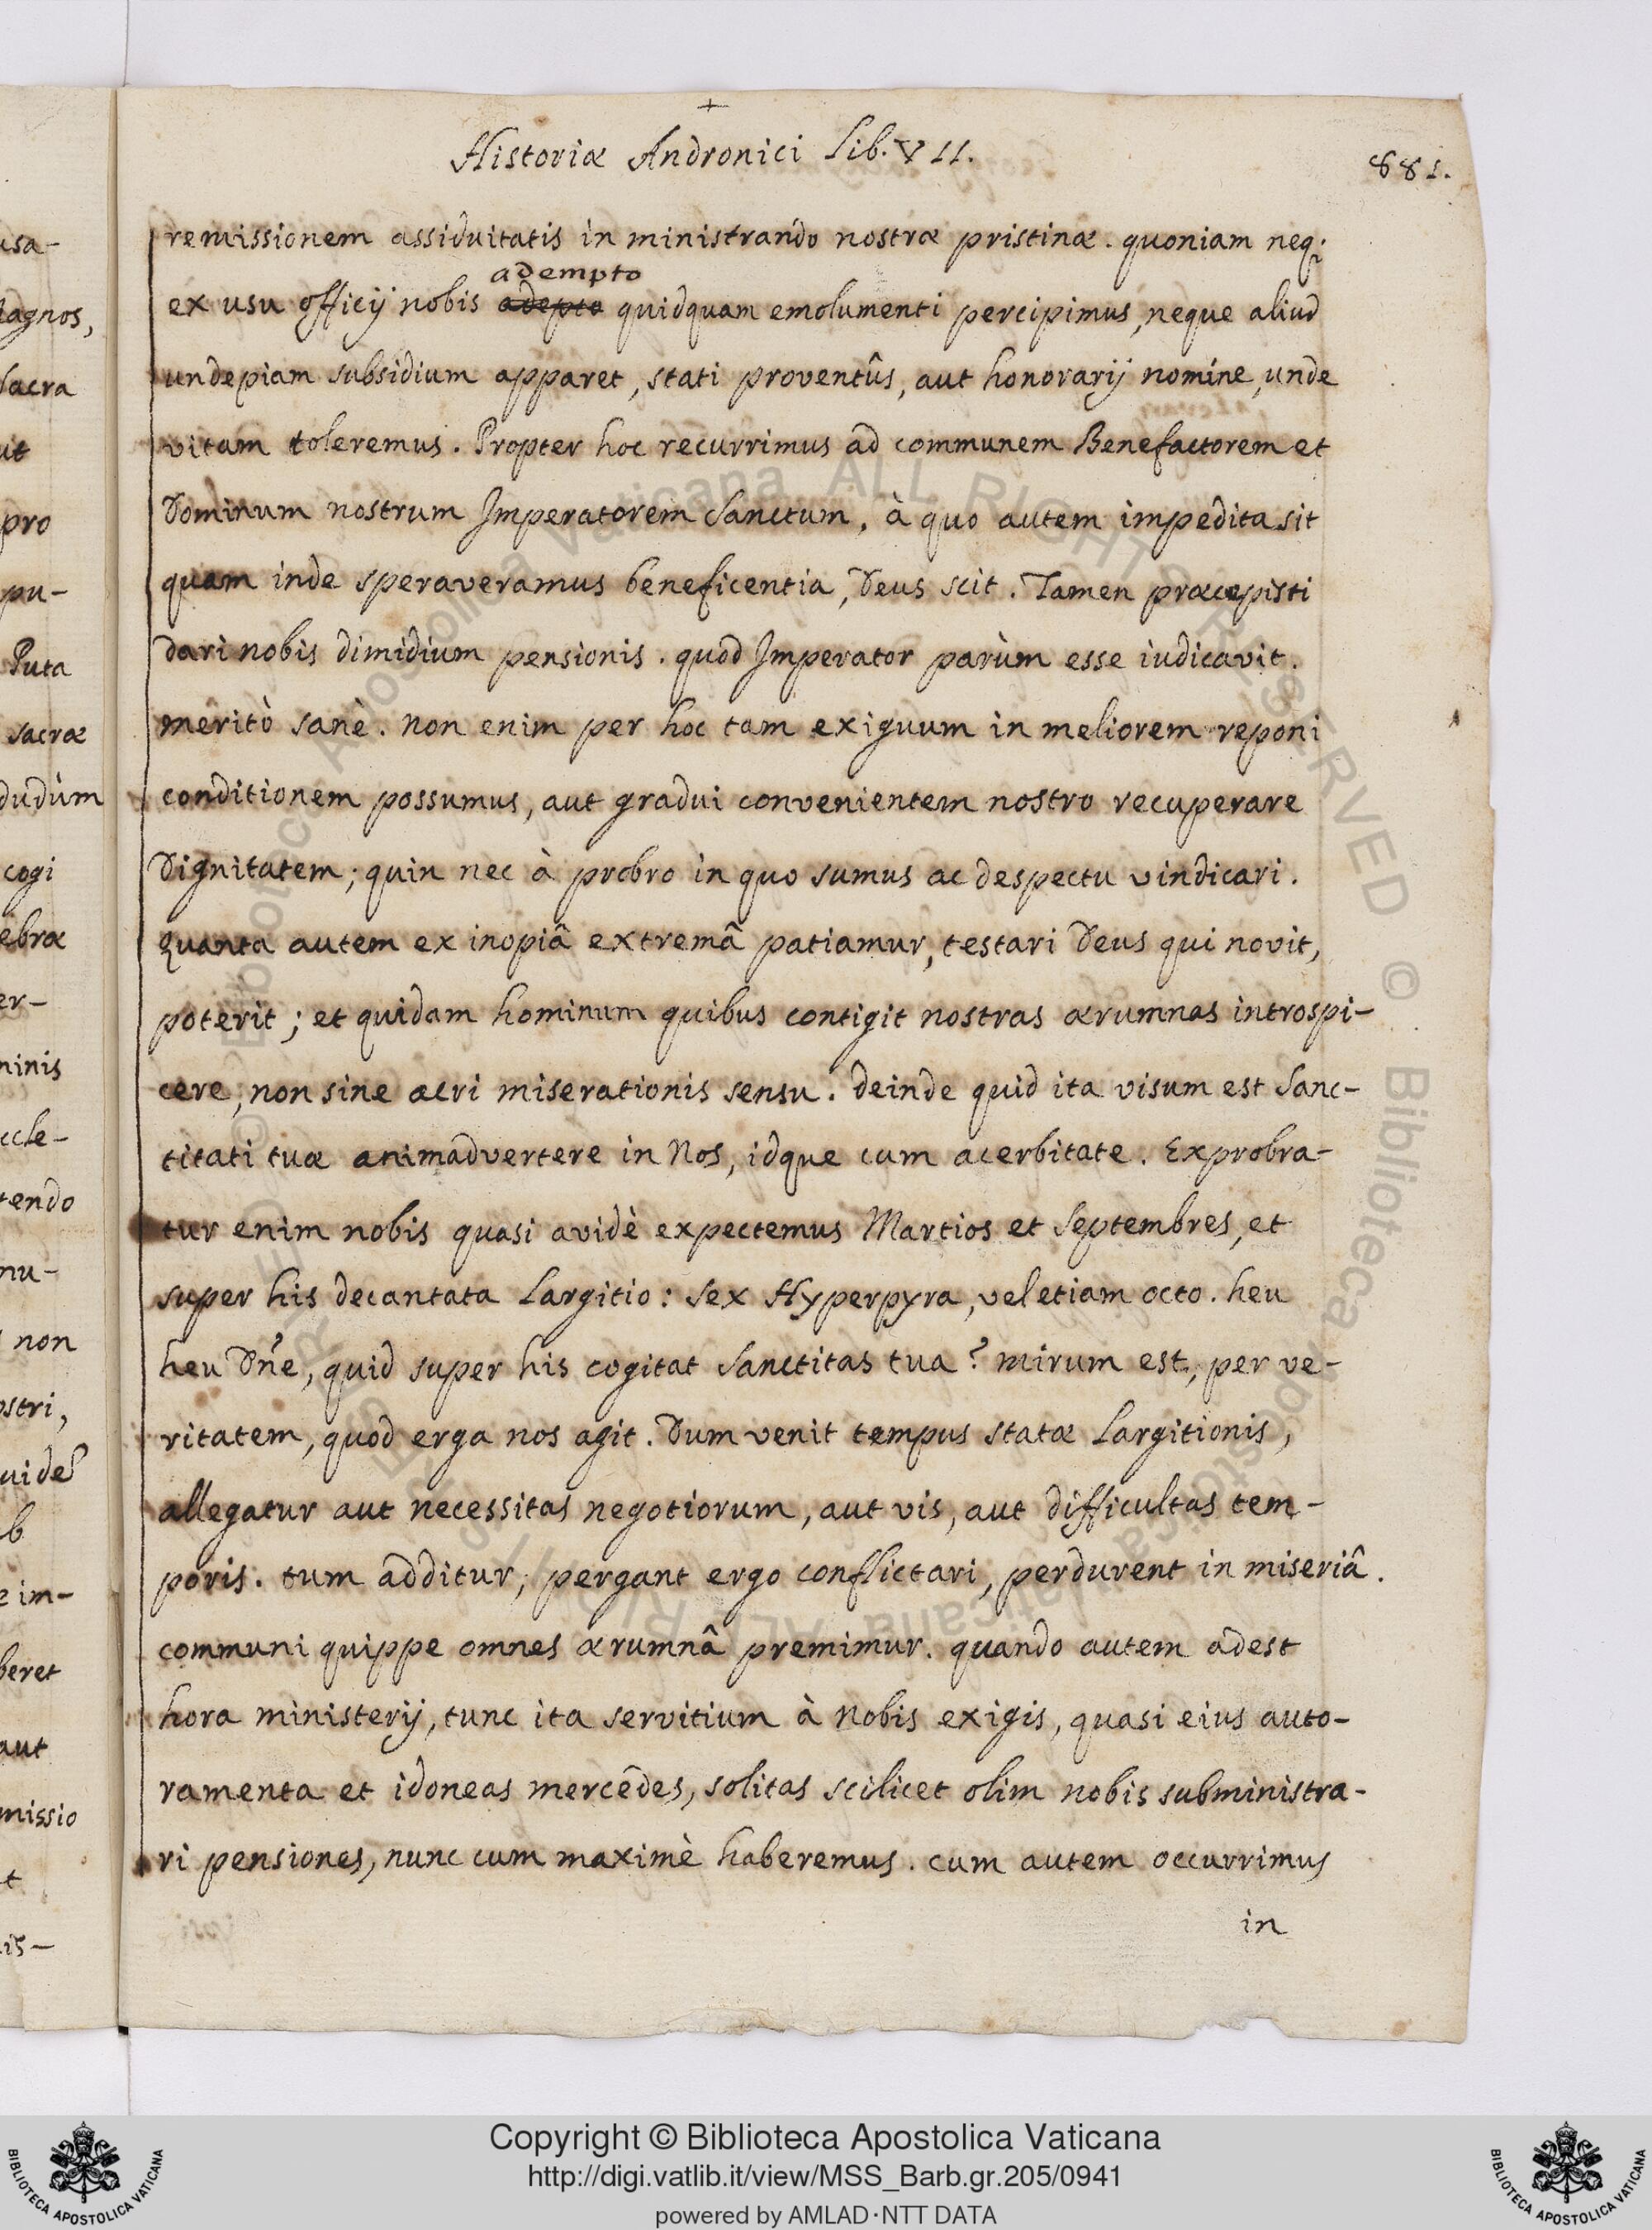 +
Historiæ Andronici Lib. VII.
881.
remissionem assiduitatis in ministrando nostræ pristinæ. quoniam neq;
adempto
ex usu officij nobis adepto quidquam emolumenti percipimus, neque aliud
undepiam subsidium apparet, stati proventûs, aut honorarij nomine, unde
vitam toleremus. Propter hoc recurrimus ad communem Benefactorem et
Dominum nostrum Imperatorem Sanctum, à quo autem impedita sit
quam inde speraveramus beneficentia, Deus scit. Tamen præcepisti
dari nobis dimidium pensionis. quod Imperator parùm esse iudicavit.
meritò sanè. non enim per hoc tam exiguum in meliorem reponi
conditionem possumus, aut gradui convenientem nostro recuperare
Dignitatem; quin nec à probro in quo sumus ac despectu vindicari.
quanta autem ex inopiâ extremâ patiamur, testari Deus qui novit,
poterit; et quidam hominum quibus contigit nostras ærumnas introspi-
cere, non sine acri miserationis sensu. deinde quid ita visum est Sanc-
titati tuæ animadvertere in Nos, idque cum acerbitate. Exprobra-
tur enim nobis quasi avidè expectemus Martios et Septembres, et
super his decantata Largitio: Sex Hyperpyra, vel etiam octo. heu
heu Dñe, quid super his cogitat Sanctitas tua? mirum est, per ve-
ritatem, quod erga nos agit. Dum venit tempus statæ Largitionis,
allegatur aut necessitas negotiorum, aut vis, aut difficultas tem-
poris. tum additur, pergant ergo conflictari, perdurent in miseriâ.
communi quippe omnes ærumnâ premimur. quando autem adest
hora ministerij, tunc ita servitium à Nobis exigis, quasi eius auto-
ramenta et idoneas mercêdes, solitas scilicet olim nobis subministra-
ri pensiones, nunc cum maximè haberemus. cum autem occurrimus
in
usa-
lagnos,
sacra
ut
pro
pu-
Puta
sacræ
dudùm
cogi
ebræ
er-
minis
ccle-
tendo
nu-
non
ostri,
uide
b
e im-
beret
aut
missio
t
is-
Copyright © Biblioteca Apostolica Vaticana
http://digi.vatlib.it/view/MSS_Barb.gr.205/0941
powered by AMLAD·NTT DATA
BIBLIOTECA APOSTOLICA VATICANA
BIBLIOTECA APOSTOLICA VATICANA